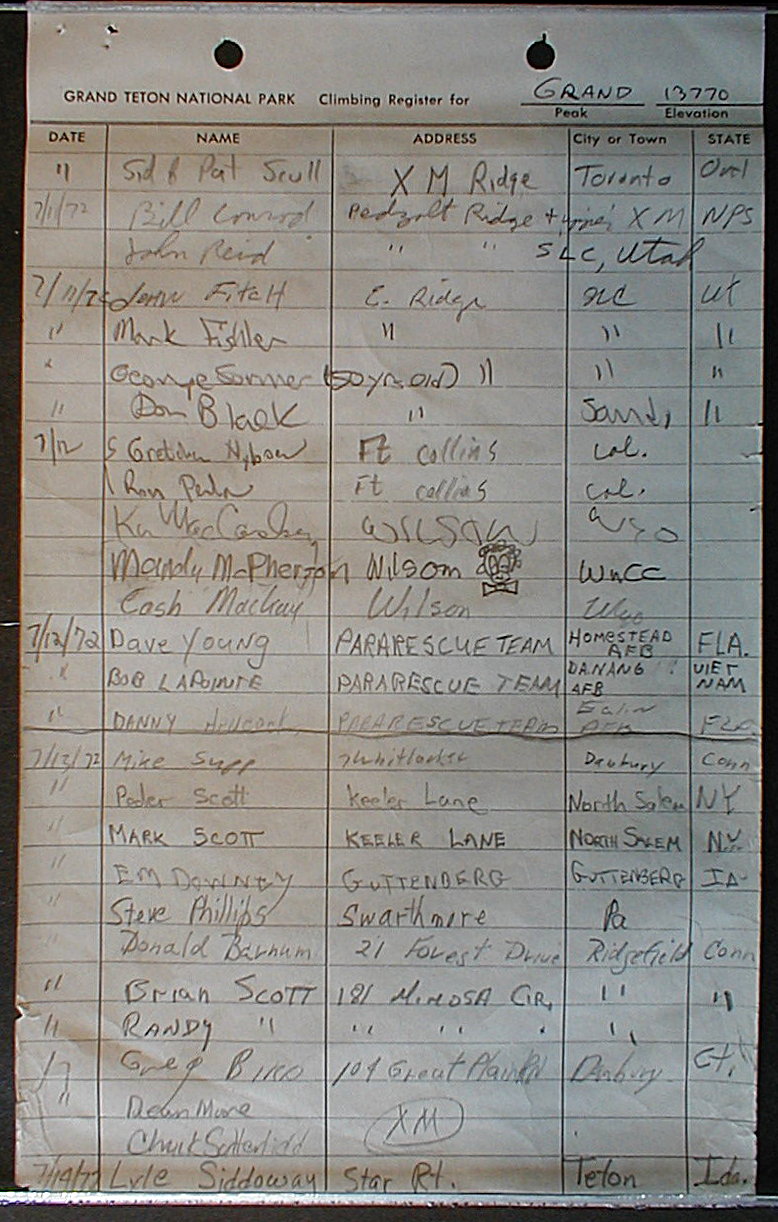 GRAND TETON NATIONAL PARK Climbing Register for GRAND 13770
Peak Elevation
DATE NAME ADDRESS City or Town STATE
" Sid & Pat Scull X M Ridge Toronto Ont
7/1/72 Bill Conrod Ridge + XM NPS
John Reid " " SLC, Utah
John Fitch E. Ridge SLC Ut
" Mark " " "
" George (50 yrs. old) " " "
" Don Black " Sandy "
7/12 Gretchen Ft collins Col.
Ron Ft collins Col.
Wilson Wyo
Mandy McPherson Wilson WnCC
Cash Mackay Wilson Wyo
7/12/72 Dave Young PARARESCUE TEAM HOMESTEAD AFB FLA.
" BOB LAPOINTE PARARESCUE TEAM DANANG AFB VIET NAM
" DANNY PARARESCUE TEAM AFB FLA
7/13/72 Mike Danbury Conn
" Peder Scott Keeler Lane North Salem NY
" MARK SCOTT KEELER LANE NORTH SALEM N.Y.
" EM DOWNEY GUTTENBERG GUTTENBERG IA
" Steve Phillips Swarthmore Pa
" Donald Barnum 21 Forest Drive Ridgefield Conn
" BRIAN SCOTT 181 MIMOSA CIR, " "
" RANDY " " " "
Greg 104 Great Plain Rd Danbury Ct.
" Dean Moore XM
Chuck Satterfield
7/19/72 Lyle Siddoway Star Rt. Teton Ida.